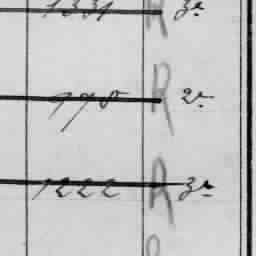 1331 R 3e
778 R 2e
1222 R 3e